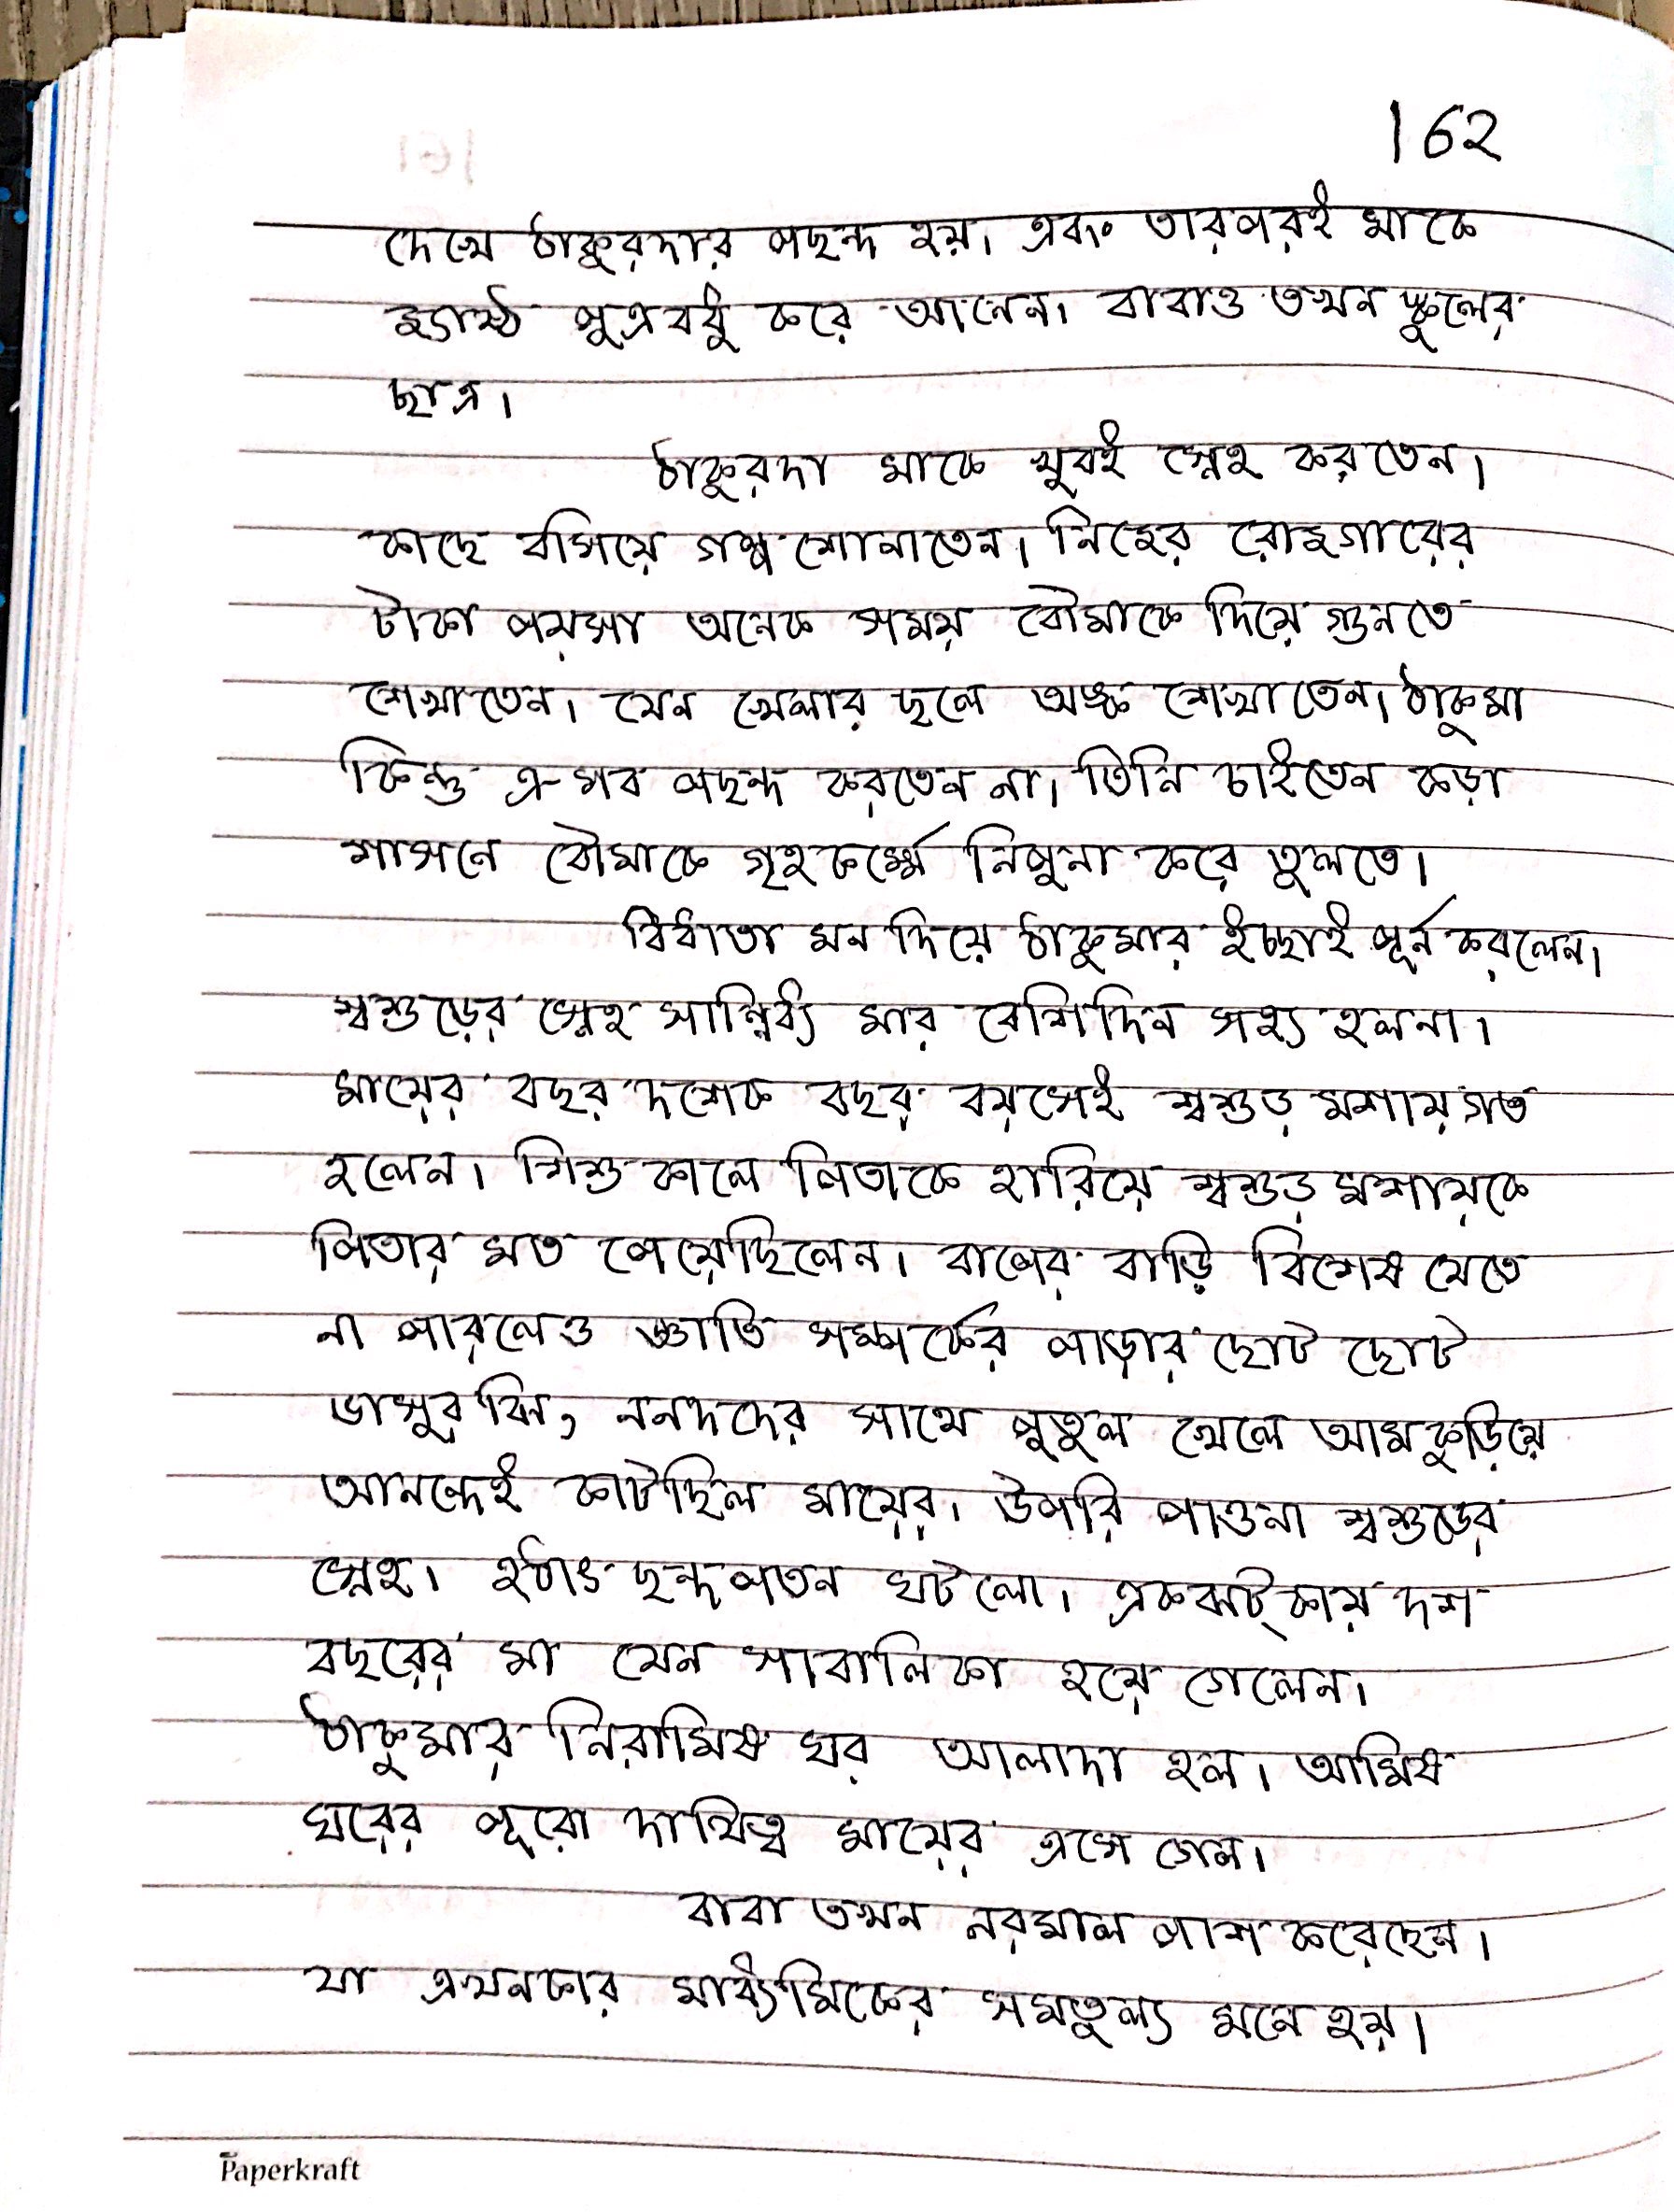 162
দেখে ঠাকুরদার পছন্দ হয়। এবং তারপরই মাকে
জ্যেষ্ঠ পুত্রবধু করে আনেন। বাবাও তখন স্কুলের
ছাত্র।
ঠাকুরদা মাকে খুবই স্নেহ করতেন।
কাছে বসিয়ে গল্প শোনাতেন। নিজের রোজগারের
টাকা পয়সা অনেক সময় বৌমাকে দিয়ে গুনতে
শেখাতেন। যেন খেলার ছলে অঙ্ক শেখাতেন। ঠাকুমা
কিন্তু এ-সব পছন্দ করতেন না। তিনি চাইতেন কড়া
শাসনে বৌমাকে গৃহকর্ম্মে নিপুনা করে তুলতে।
বিধাতা মন দিয়ে ঠাকুমার ইচ্ছাই পূর্ন করলেন।
শ্বশুড়ের স্নেহ সান্নিধ্য মার বেশিদিন সহ্য হলনা।
মায়ের বছর দশেক বছর বয়সেই শ্বশুড় মশায় গত
হলেন। শিশু কালে পিতাকে হারিয়ে শ্বশুড় মশায়কে
পিতার মত পেয়েছিলেন। বাপের বাড়ি বিশেষ যেতে
না পারলেও জ্ঞাতি সম্পর্কের পাড়ার ছোট ছোট
ভাসুর ঝি, ননদদের সাথে পুতুল খেলে আম কুড়িয়ে
আনন্দেই কাটছিল মায়ের। উপরি পাওনা শ্বশুড়ের
স্নেহ। হঠাৎ ছন্দপতন ঘটলো। একঝট্‌কায় দশ
বছরের মা যেন সাবালিকা হয়ে গেলেন।
ঠাকুমার নিরামিষ ঘর আলাদা হল। আমিষ
ঘরের পুরো দায়িত্ব মায়ের এসে গেল।
বাবা তখন নরমাল পাশ করেছেন।
যা এখনকার মাধ্যমিকের সমতুল্য মনে হয়।
Paperkraft